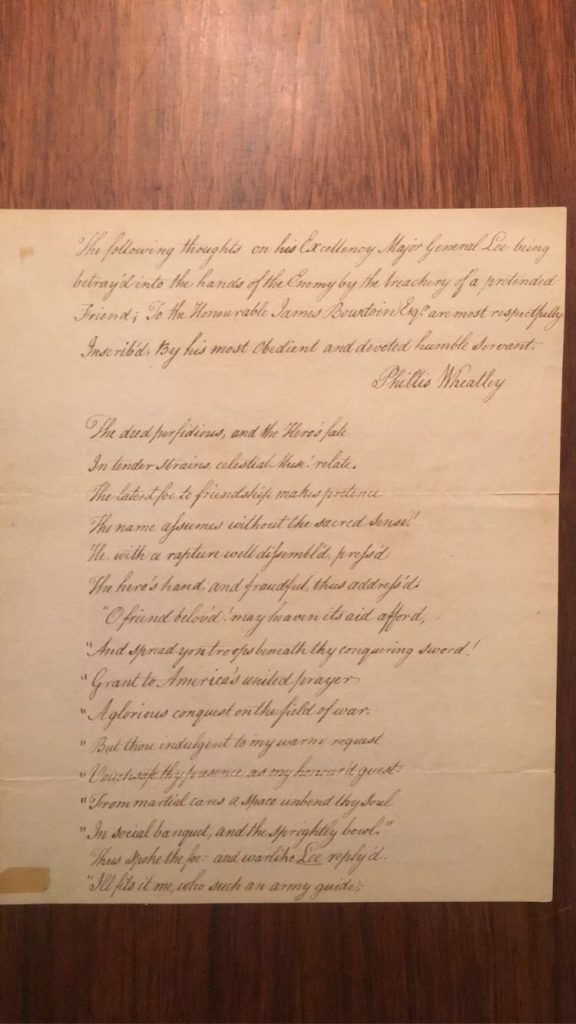 The following thoughts on his Excellency Major General Lee being
betray'd into the hands of the Enemy by the treachery of a pretended
Friend; To the Honourable James Bowdoin Esqr. are most respectfully
Inscrib'd, By his most Obedient and devoted humble servant.
Phillis Wheatley.
The deed perfidious, and the Hero's fate
In tender strains, celestial Muse! relate.
The latent foe to friendship makes pretence
The name assumes without the sacred sense!
He, with a rapture well dissembl'd, press'd
The hero's hand, and fraudful, thus address'd.
"O friend belov'd! may heaven its aid afford,
"And spread yon troops beneath thy conquering sword!
"Grant to America's united prayer
"A glorious conquest on the field of war.
"But thou indulgent to my warm request
"Vouchsafe thy presence as my honour'd guest:
"From martial cares a space unbend thy soul
"In social banquet, and the sprightly bowl."
Thus spoke the foe: and warlike Lee reply'd.
"Ill fits it me, who such an army guide;